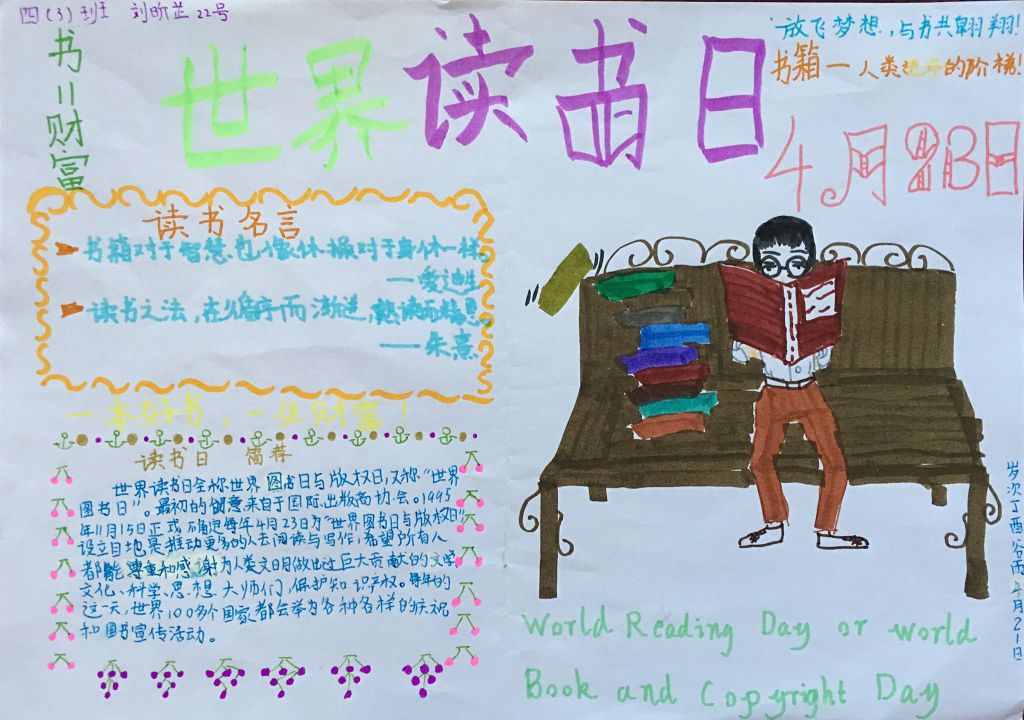 四(3)班 刘昕芷 22号
书=财富
世界读书日
放飞梦想,与书共翱翔!
书籍一人类进步的阶梯!
4月23日
读书名言
书籍对于智慧也像体操对于身体一样。
——爱迪生
读书之法,在循序而渐进,熟读而精思。
——朱熹
一本好书,一生财富!
读书日 简荐
世界读书日全称世界图书日与版权日,又称“世界
图书日”。最初的创意来自于国际出版商协会。1995
年11月15日正式确定每年4月23日为“世界图书日与版权日”
设立目地是推动更多的人去阅读与写作,希望所有人
都能尊重和感谢为人类文明做出过巨大贡献的文学
文化、科学、思想大师们,保护知识产权。每年的
这一天,世界100多个国家都会举为各种各样的庆祝
和图书宣传活动。
World Reading Day or world
Book and Copyright Day
岁次丁酉谷雨4月21日